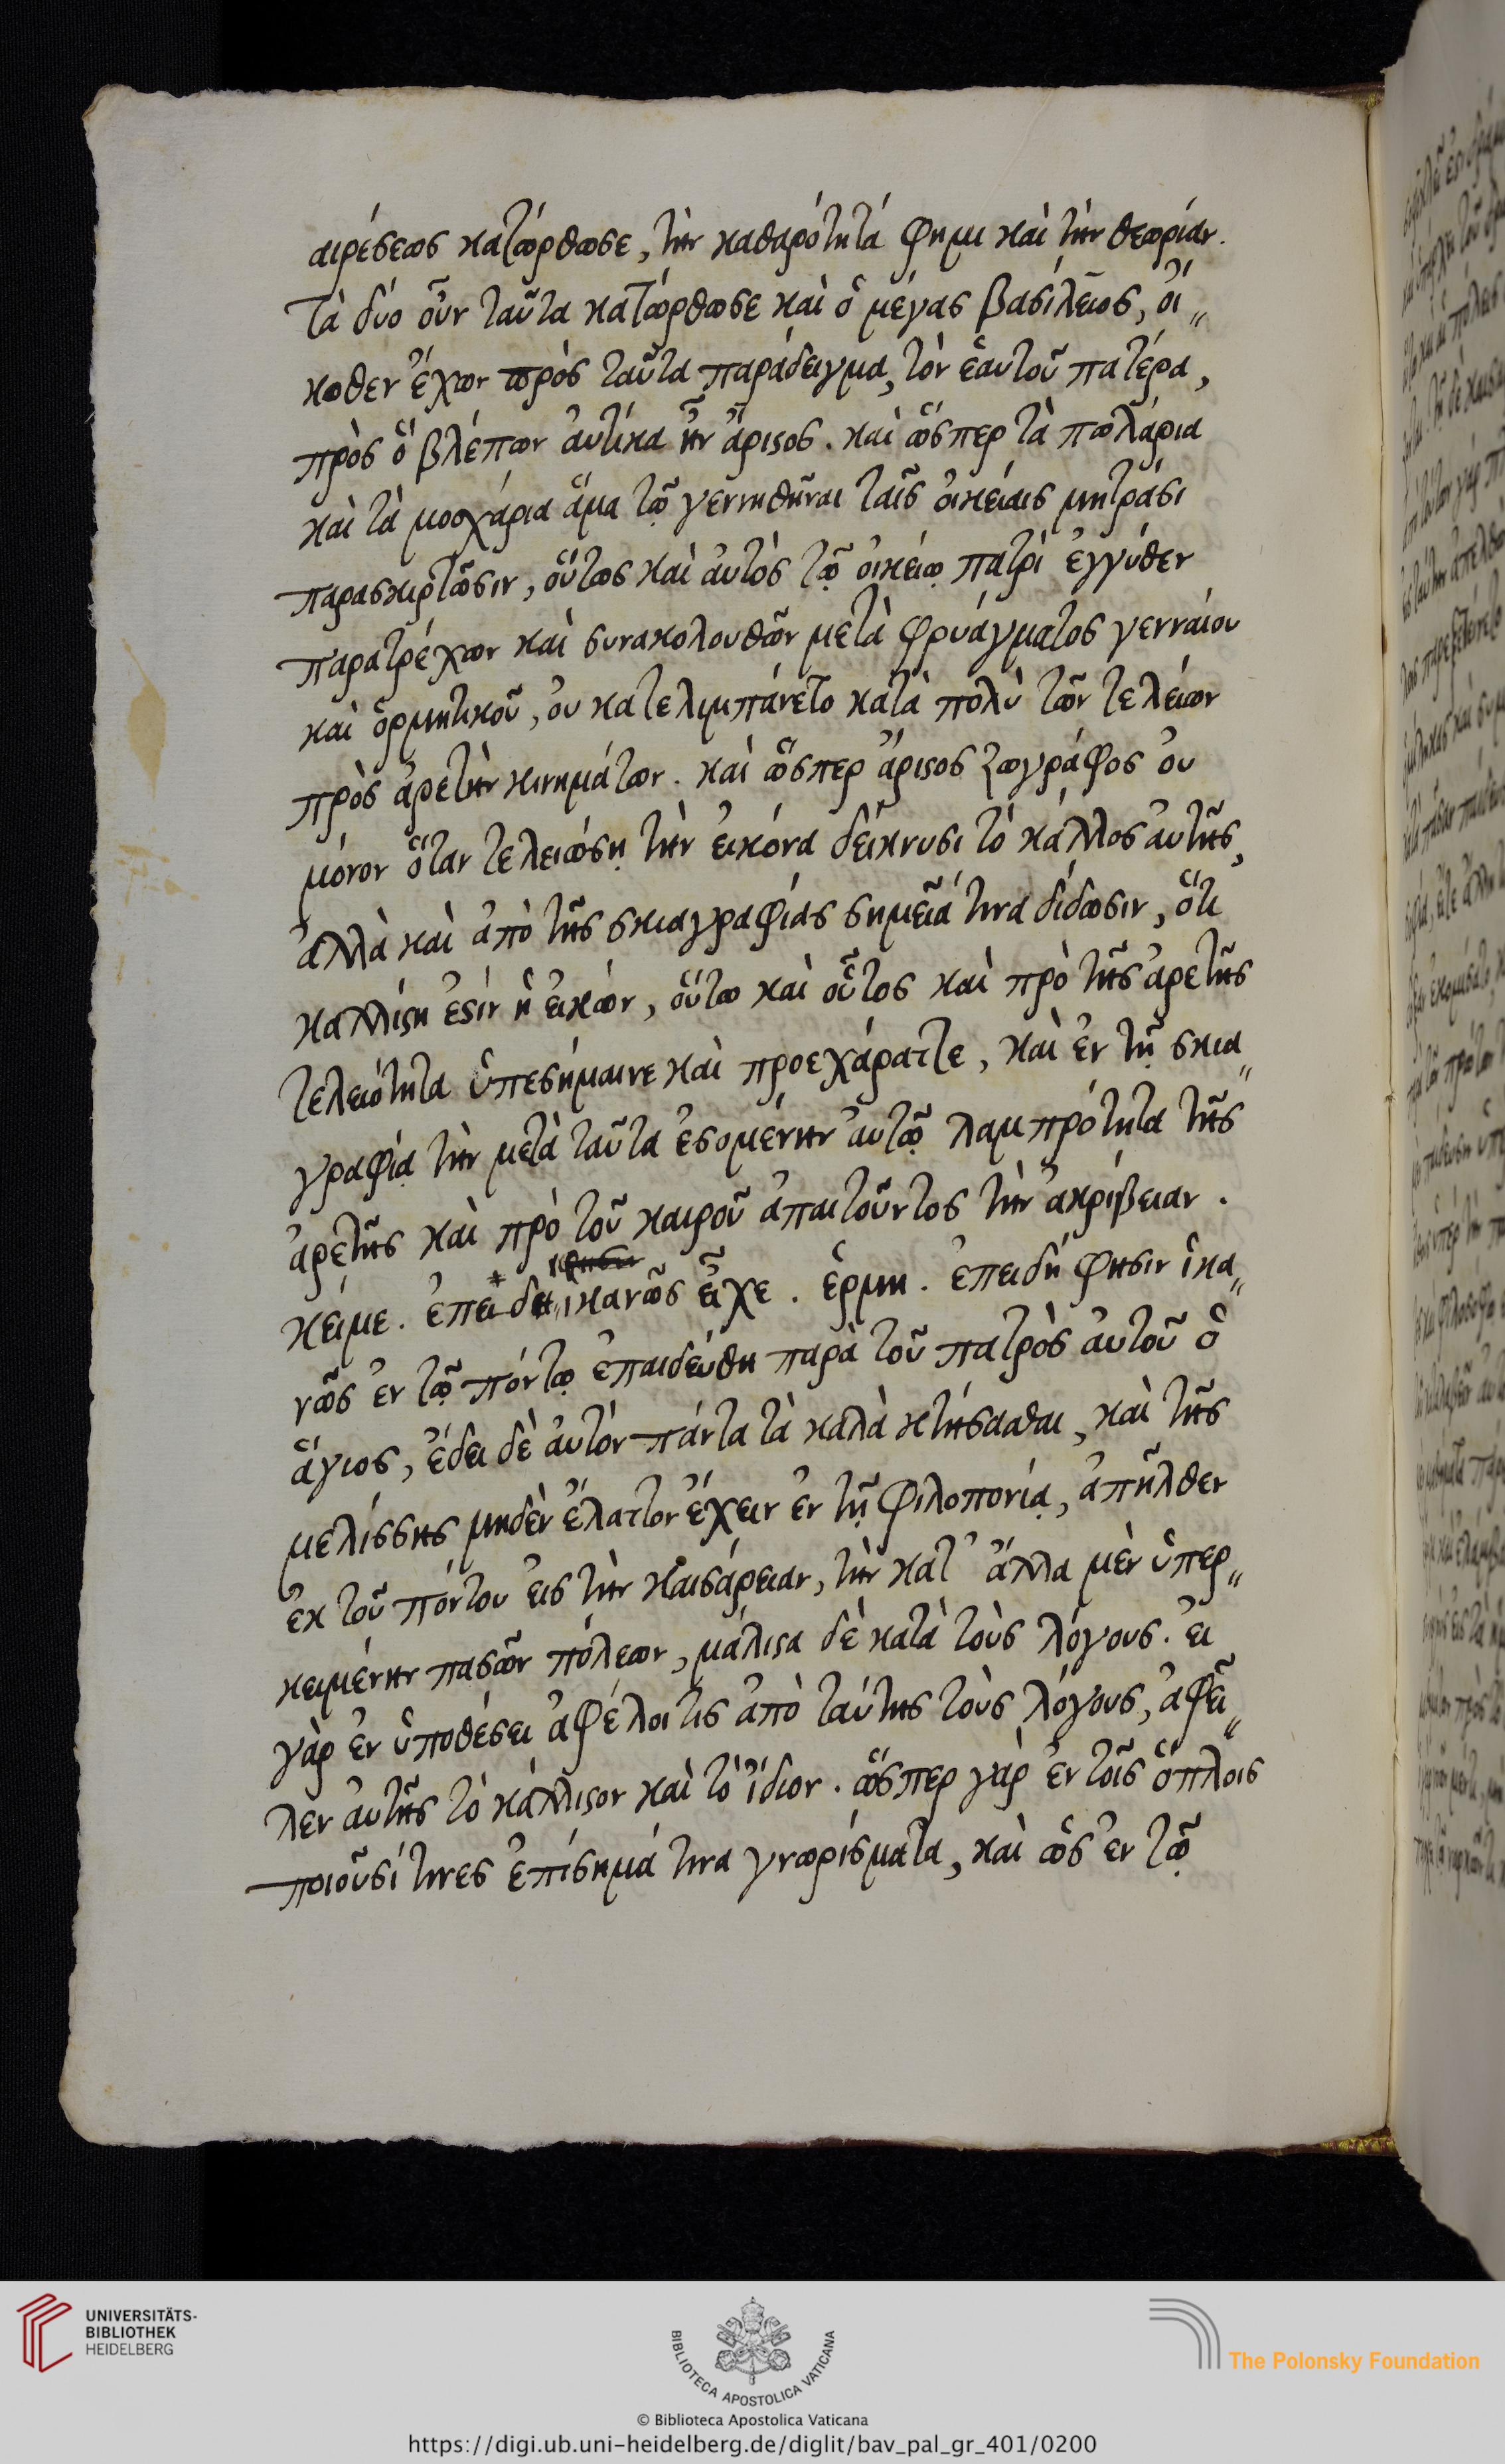 αιρέσεως κατώρθωσε, τὴν καθαρότητά φημι καὶ τὴν θεωρίαν.
τὰ δύο οὖν ταῦτα κατώρθωσε καὶ ὁ μέγας βασίλειος, οἴ„
κοθεν ἔχων πρὸς ταῦτα παράδειγμα, τὸν ἑαυτοῦ πατέρα,
πρὸς ὃ βλέπων ἀυτίκα ἦν ἄριστος. καὶ ὥσπερ τὰ πωλάρια
καὶ τὰ μοσχάρια ἅμα τῷ γεννηθῆναι ταῖς οἰκείαις μητράσι
παρασκιρτῶσιν, οὕτως καὶ ἀυτὸς τῷ οἰκείῳ πατρὶ ἐγγύθεν
παρατρέχων καὶ συνακολουθῶν μετὰ φρυάγματος γενναίου
καὶ ὁρμητικοῦ, ὀυ κατελιμπάνετο κατὰ πολὺ τῶν τελείων
πρὸς ἀρετὴν κινημάτων. καὶ ὥσπερ ἄριστος ζωγράφος ὀυ
μόνον ὅταν τελειώσῃ τὴν ἐικόνα δείκνυσι τὸ κάλλος ἀυτῆς,
ἀλλὰ καὶ ἀπὸ τῆς σκιαγραφίας σημεῖά τινα δίδωσιν, ὅτι
καλλίστη ἐστίν ἡ ἐικών, οὕτω καὶ οὗτος καὶ πρὸ τῆς ἀρετῆς
τελειότητα ὑπεσήμαινε καὶ προεχάραττε, καὶ ἐν τῇ σκια„
γραφίᾳ τὴν μετὰ ταῦτα ἐσομένην ἀυτῷ λαμπρότητα τῆς
ἀρετῆς καὶ πρὸ τοῦ καιροῦ ἀπαιτοῦντος τὴν ἀκρίβειαν.
κείμε. ἐπει δὲ ἱκανῶς εἶχε. ἑρμη. ἐπειδή φησιν ἱκα„
νῶς ἐν τῷ πόντῳ ἐπαιδεύθη παρὰ τοῦ πατρὸς ἀυτοῦ ὁ
ἅγιος, ἔδει δὲ ἀυτόν πάντα τὰ καλὰ κτήσασθαι, καὶ τῆς
μελίσσης μηδὲν ἔλαττον ἔχειν ἐν τῇ φιλοπονίᾳ, ἀπῆλθεν
ἐκ τοῦ πόντου ἐις τὴν καισάρειαν, τὴν κατ' ἄλλα μὲν ὑπερ„
κειμένην πασῶν πόλεων, μάλιστα δὲ κατὰ τοὺς λόγους. ἐι
γὰρ ἐν ὑποθέσει ἀφέλοι τις ἀπὸ ταύτης τοὺς λόγους, ἀφεῖ„
λεν ἀυτῆς τὸ κάλλιστον καὶ τὸ ἴδιον. ὥσπερ γὰρ ἐν τοῖς ὅπλοις
ποιοῦσί τινες ἐπίσημά τινα γνωρίσματα, καὶ ὡς ἐν τῷ
UNIVERSITÄTS-
BIBLIOTHEK
HEIDELBERG
BIBLIOTECA APOSTOLICA VATICANA
The Polonsky Foundation
© Biblioteca Apostolica Vaticana
https://digi.ub.uni-heidelberg.de/diglit/bav_pal_gr_401/0200